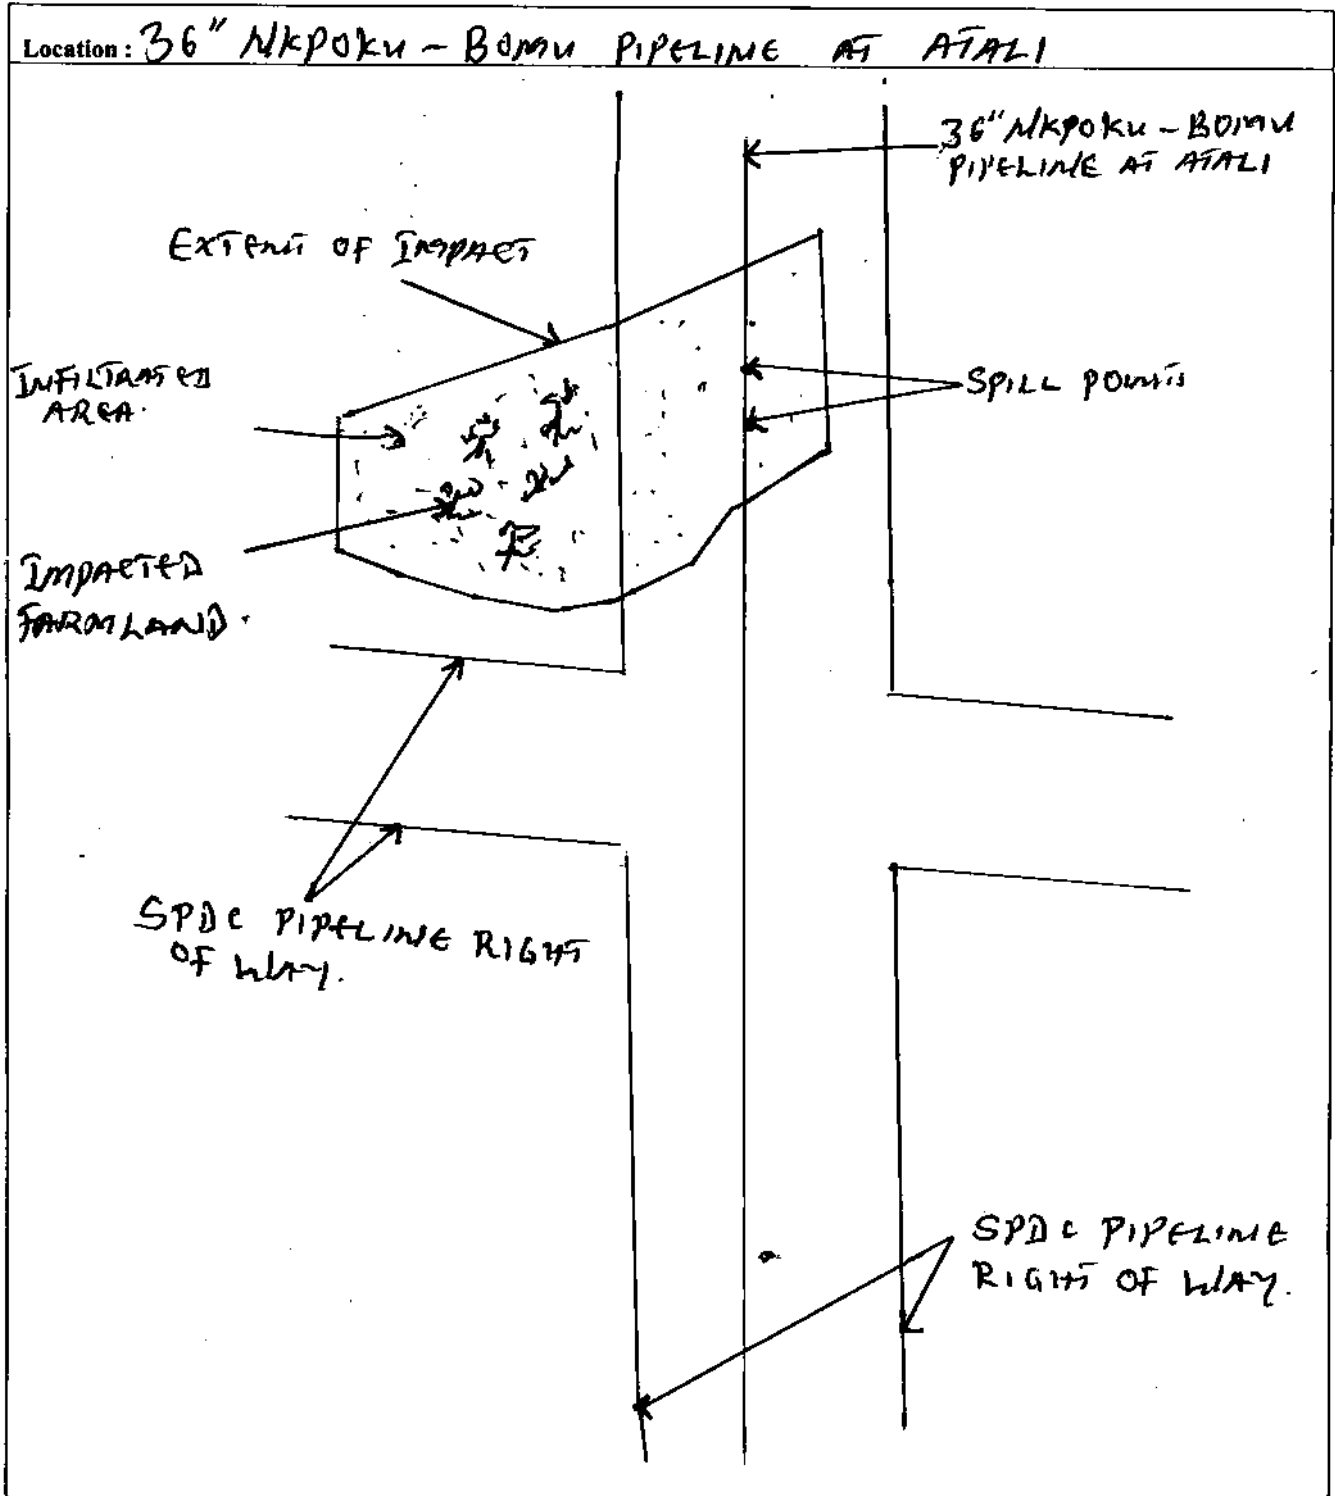 Location : 36" NKPOKU - BOMU PIPELINE AT ATALI
36" NKPOKU - BOMU
PIPELINE AT ATALI
EXTENT OF IMPACT
INFILTRATED
AREA.
SPILL POINTS
IMPACTED
FARMLAND.
SPDC PIPELINE RIGHT
OF WAY.
SPDC PIPELINE
RIGHT OF WAY.